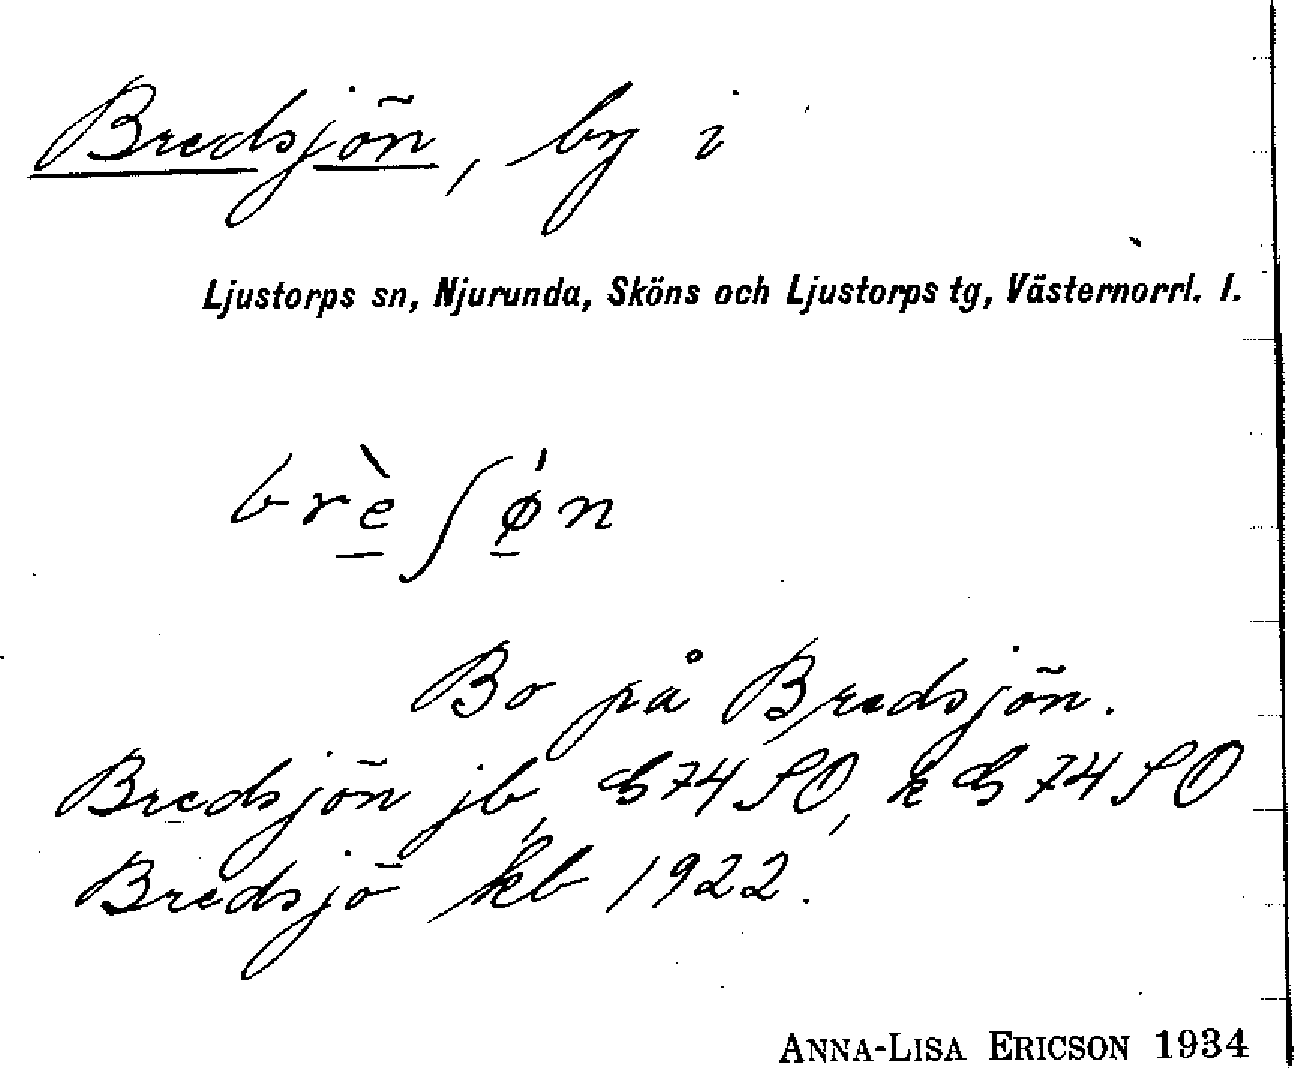 Bredsjön, by i
Ljustorps sn, Njurunda, Sköns och Ljustorps tg, Västernorrl. l.
brè̠ʃǿ̠n
Bo på Bredsjön.
Bredsjön jb, G 74 SO, k G 74 SO
Bredsjö kb 1922.
ANNA-LISA ERICSON 1934